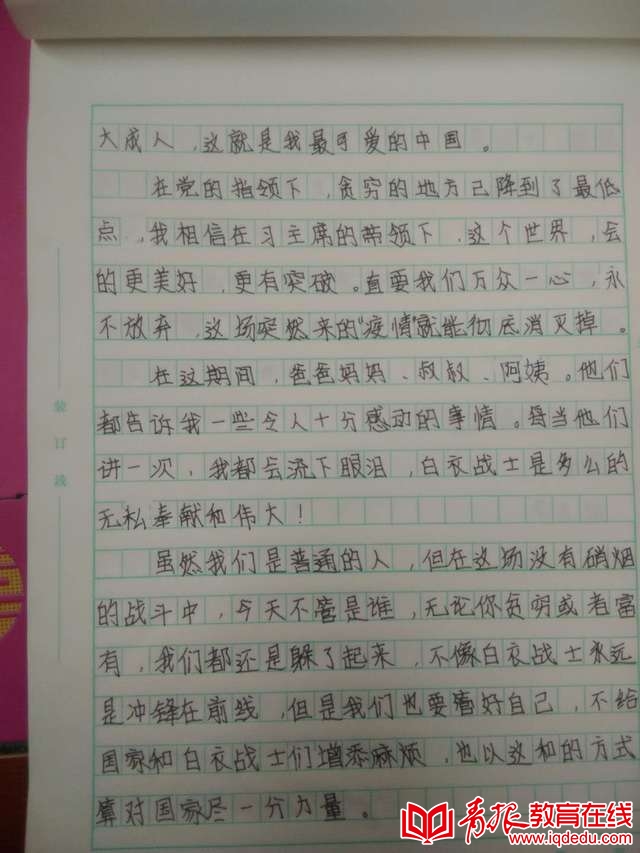 大成人，这就是我最可爱的中国。
在党的指领下，贪穷的地方已降到了最低
点，我相信在习主席的带领下，这个世界，会
的更美好，更有突破。直要我们万众一心，永
不放弃，这场突然来的"疫情"就能彻底消灭掉。
在这期间，爸爸妈妈、叔叔、阿姨。他们
都告诉我一些令人十分感动的事情。每当他们
讲一次，我都会流下眼泪，白衣战士是多么的
无私奉献和伟大！
虽然我们是普通的人，但在这场没有硝烟
的战斗中，今天不管是谁，无论你贪穷或者富
有，我们都还是躲了起来，不像白衣战士永远
是冲锋在前线，但是我们也要看好自己，不给
国家和白衣战士们增添麻烦，也以这和的方式
算对国家尽一分力量。
装订线
青报教育在线
www.iqdedu.com